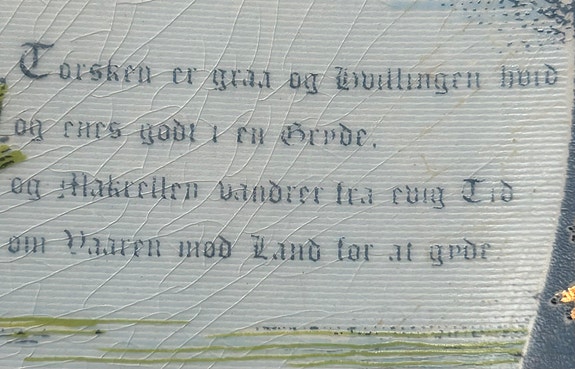 Torsken er graa og Hvillingen hvid
og enes godt i en Gryde,
og Makrellen vandrer fra evig Tid
om Vaaren mod Land for at gyde